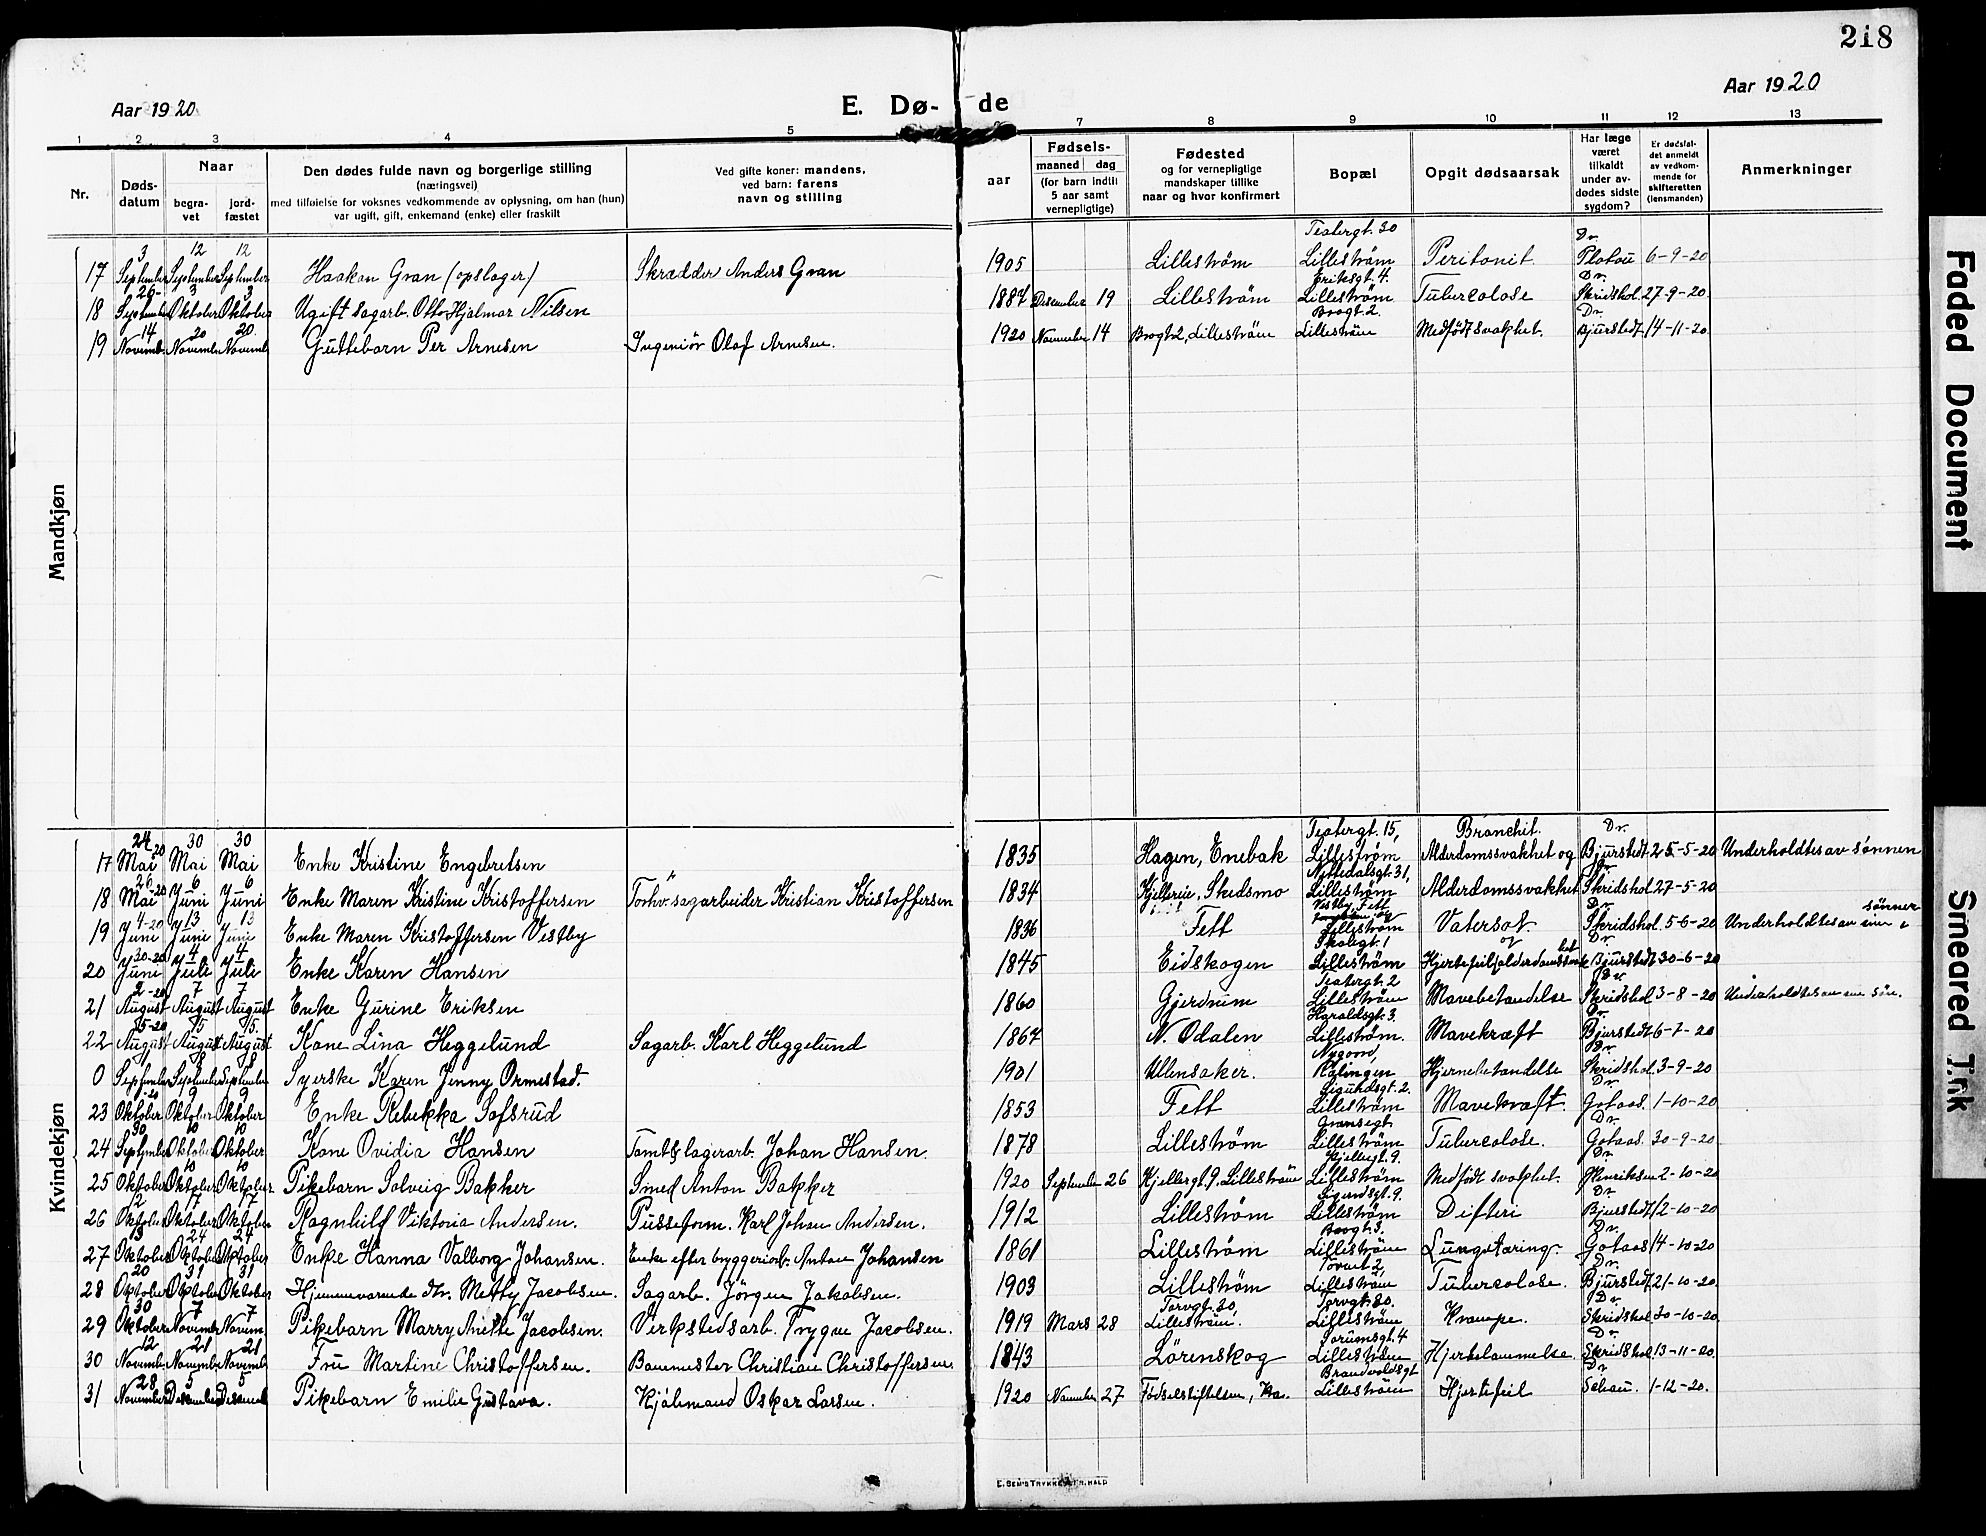 218
Aar 1920
E. Dø-
de
Aar 1920
1 2 3 4 5 7 8 9 10 11 12 13
Nr.
Døds-
datum
Naar
begra-
vet
jord-
fæstet
Den dødes fulde navn og borgerlige stilling
(næringsvei)
med tilføielse for voksnes vedkommende av oplysning, om han (hun)
var ugift, gift, enkemand (enke) eller fraskilt
Ved gifte koner: mandens,
ved barn: farens
navn og stilling
aar
Fødsels-
maaned dag
(for barn indtil
5 aar samt
vernepligtige)
Fødested
og for vernepligtige
mandskaper tillike
naar og hvor konfirmert
Bopæl
Opgit dødsaarsak
Har læge
været
tilkaldt
under av-
dødes sidste
sygdom?
Er dødsfal-
det anmeldt
av vedkom-
mende for
skifteretten
(lensmanden)
Anmerkninger
Mandkjøn
3 12 12 Teatergt. 30 Dr.
17 September September September Haakon Gran (opslager) Skrædder Anders Gran 1905 Lillestrøm Lillestrøm Peritonit Platou 6-9-20
26 3 3 Eriksgt. 4. Dr.
18 September Oktober Oktober Ugift Sagarb. Otto Hjalmar Nilsen 1887 Desember 19 Lillestrøm Lillestrøm Tuberculose Skridshol. 27-9-20.
14 20 20. Brogt 2. Dr.
19 Novemb. Novemb. Novemb. Guttebarn Per Arnesen Ingeniør Olaf Arnesen. 1920 November 14 Brogt 2, Lillestrøm Lillestrøm Medfødt svakhet. Bjurstedt 14-11-20.
Kvindekjøn
24-20 30 30 Teatergt. 15, Bronchit. Dr.
17 Mai Mai Mai Enke Kristine Engebretsen 1835 Hagen, Enebak Lillestrøm Alderdomssvakhet og Bjurstedt 25-5-20 Underholdtes av sønnen
26-20 6 6 Nittedalsgt. 31,
18 Mai Juni Juni Enke Maren Kristine Kristoffersen Forhv. sagarbeider Kristian Kristoffersen 1834 Kjellereie, Skedsmo Lillestrøm Alderdomssvakhet Skridshol 27-5-20
4-20 13 13 Vestby, Fett Dr. sønner
19 Juni Juni Juni Enke Maren Kristoffersen Vestby 1836 Fett Lillestrøm Vatersot Skridshol. 5-6-20 Underholdtes av
30-20 4 4 Skolegt. 1 og Dr.
20 Juni Juli Juli Enke Karen Hansen 1845 Eidskogen Lillestrøm Bjurstedt 30-6-20
2-20 7 7 Teatergt. 2 Dr.
21 August August August Enke Gurine Eriksen 1860 Gjerdrum Lillestrøm Mavebetændelse Skridshol 3-8-20 Underholdtes av en søn.
15 15. Haraldsgt. 3. Dr.
22 August August August Kone Lina Heggelund Sagarb. Karl Heggelund 1867 N. Odalen Lillestrøm. Mavekræft Bjurstedt 6-7-20
1 8 8 Nygaard, Dr.
0 September September September Syerske Karen Jenny Ormestad. 1901 Ullensaker. Rælingen Hjernebetændelse Skridshol. 3-9-20
1-20 9 9 Sigurdsgt. 2. Dr.
23 Oktober Oktober Oktober Enke Rebekka Sofsrud 1853 Fett Lillestrøm Mavekræft. Gotaas. 1-10-20
30 10 10 Grænsegt. Dr.
24 September Oktober Oktober Kone Ovidia Hansen Tomt & lagerarb. Johan Hansen. 1878 Lillestrøm Lillestrøm Tuberculose. Gotaas. 30-9-20
10 10 Kjellergt. 9. Dr.
25 Oktober Oktober Oktober Pikebarn Solveig Bakker Smed Anton Bakker 1920 September 26 Kjellergt. 9. Lillestrøm Lillestrøm Medfødt svakhet. Henriksen 2-10-20
12 17 17 Sigurdsgt. 9. Dr.
26 Oktober Oktober Oktober Ragnhild Viktoria Andersen. Pusseform. Karl Johan Andersen. 1912 Lillestrøm Lillestrøm Difteri Bjurstedt 12-10-20
13 24 24 Brogt 3. Dr.
27 Oktober Oktober Oktober Enke Hanna Valborg Johansen. Enke efter bryggeriarb. Anton Johansen 1861 Lillestrøm Lillestrøm Lungetæring. Gotaas 14-10-20
20 31 31 Torvet 2, Dr.
28 Oktober Oktober Oktober Hjemmeværende Fr. Metty Jacobsen. Sagarb. Jörgen Jakobsen. 1903 Lillestrøm Lillestrøm Tuberculose. Bjurstedt 21-10-20.
30 7 7 Torvgt. 30, Torvgt. 30. Dr.
29 Oktober Novemb. Novem. Pikebarn Marry Anette Jacobsen. Verkstedsarb. Trygve Jacobsen. 1919 Mars 28 Lillestrøm. Lillestrøm Krampe. Skridshol 30-10-20
12 21 21 Sørumsgt. 4 Dr.
30 Novemb. Novemb. Novemb. Fru Martine Christoffersen. Banemester Christian Christoffersen. 1843 Lörenskog Lillestrøm Hjertelammelse. Skridshol 13-11-20.
28 5 5 Brandvoldsgt Dr
31 November Desember Desemb. Pikebarn Emilie Gustava. Hjälmand Oskar Larsen. 1920 November 27 Fødselsstiftelsen, Kra. Lillestrøm Hjertefeil Schou. 1-12-20.
Faded Document
Smeared Ink